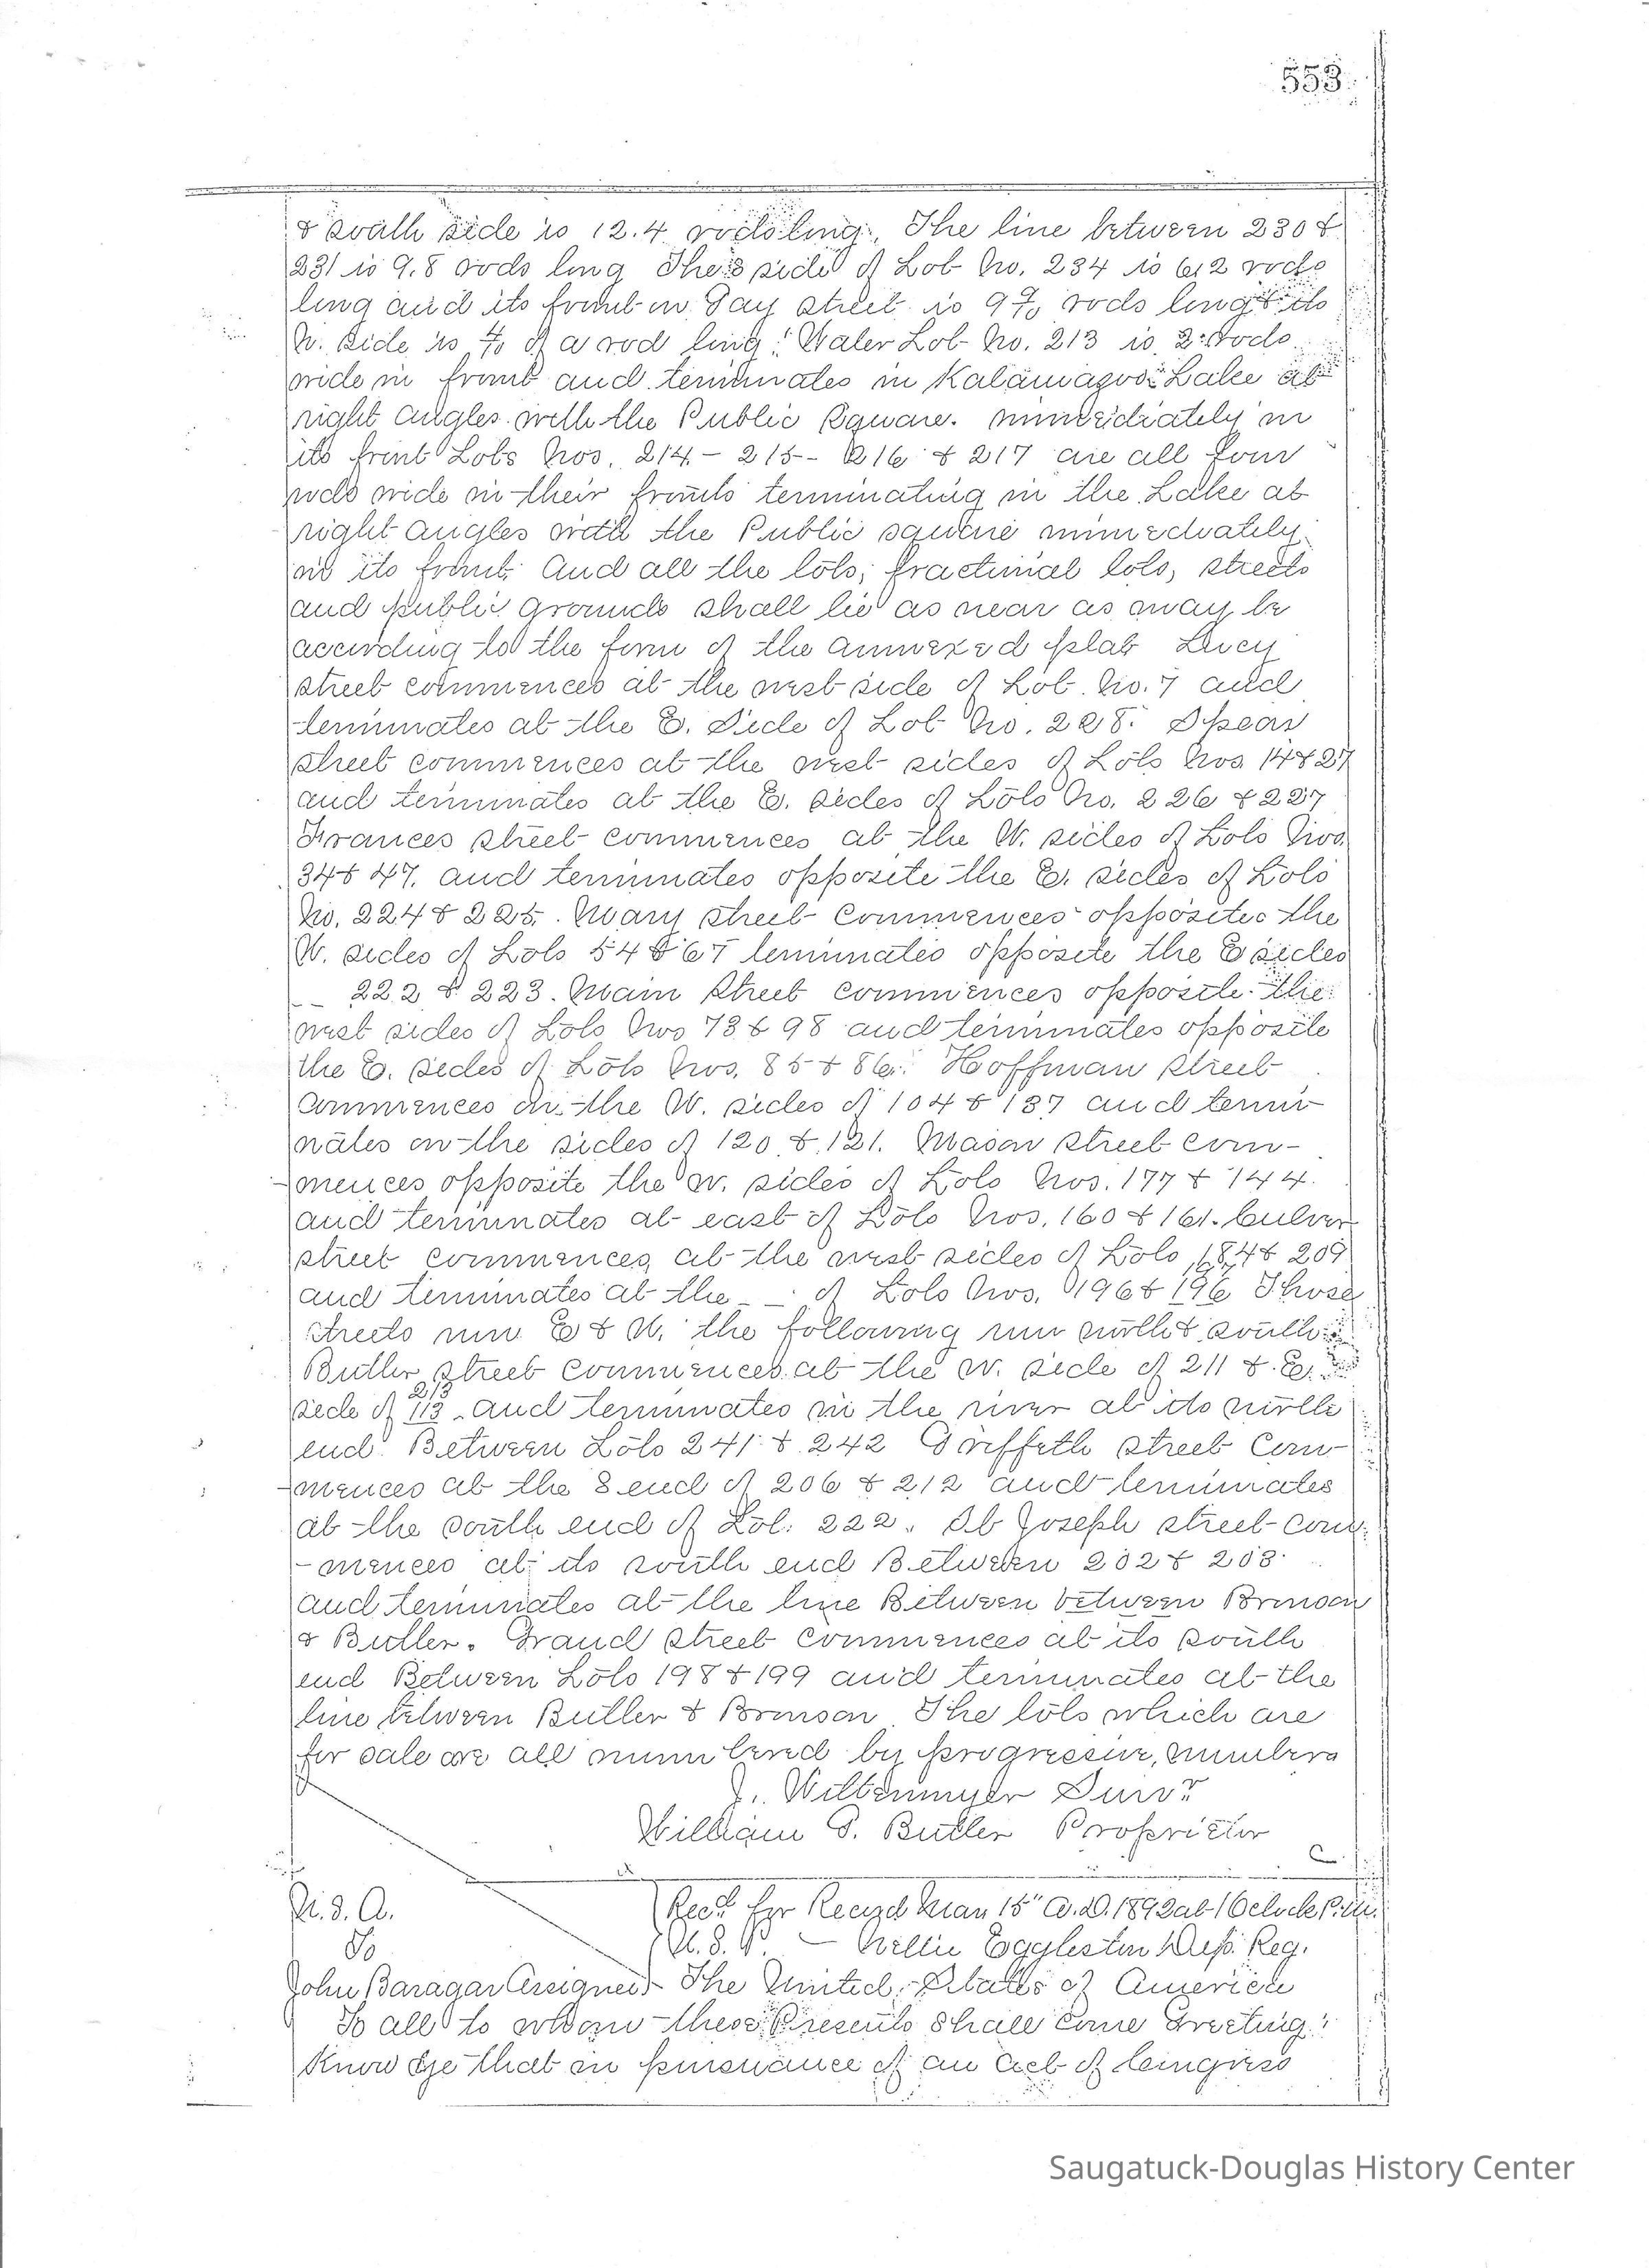 553.
& South side is 12.4 rods long. The line between 230 &
231 is 9.8 rods long The S side of Lot No. 234 is 612 rods
long and its front on Gay street is 9 7/10 rods long & its
N. side is 4/10 of a rod long. Water Lot No. 213 is 2 rods
wide in front and terminates in Kalamazoo Lake at
right angles with the Public Square. immediately in
its front Lots Nos. 214 - 215 - 216 & 217 are all four
rods wide in their fronts terminating in the Lake at
right angles with the Public square immediately
in its front. And all the lots, fractional lots, streets
and public grounds shall lie as near as may be
according to the form of the annexed plat Lucy
street commences at the west side of Lot No. 7 and
terminates at the E. Side of Lot No. 228. Spear
street commences at the west sides of Lots Nos 14 & 27
and terminates at the E. sides of Lots No. 226 & 227
Frances street commences at the W. sides of Lots Nos.
34 & 47. and terminates opposite the E. sides of Lots
No. 224 & 225. Mary street commences opposite the
W. sides of Lots 54 & 67 terminates opposite the E sides
-- 222 & 223. Main street commences opposite the
west sides of Lots Nos 73 & 98 and terminates opposite
the E. sides of Lots Nos. 85 & 86. Hoffman street
commences on the W. sides of 104 & 137 and termi-
nates on the sides of 120 & 121. Mason street com-
-mences opposite the w. sides of Lots Nos. 177 & 144.
and terminates at east of Lots Nos. 160 & 161. Culver
street commences at the west sides of Lots 184 & 209
and terminates at the _ _ of Lots Nos. 196 & 196 Those
streets run E & W. the following run north & south
Butler street commences at the w. side of 211 & E.
213
side of 113 and terminates in the river at its north
end. Between Lots 241 & 242 Griffeth street com-
-mences at the S end of 206 & 212 and terminates
at the south end of Lot. 222. St Joseph street com-
-mences at its south end Between 202 & 203
and terminates at the line Between between Brinson
& Butler. Grand street commences at its south
end Between Lots 198 & 199 and terminates at the
line between Butler & Brinson The lots which are
for sale are all numbered by progressive, numbers
J. Wittenmyer Survr
William G. Butler Proprietor
U. S. A. Recd for Record Mar 15" A.D. 1892 at 1 Oclock P.M.
To U. S. P. — Nellie Eggleston Dep. Reg.
John Baragar Assignee The United States of America
To all to whom these Presents shall come Greeting:
Know Ye that in pursuance of an Act of Congress
Saugatuck-Douglas History Center